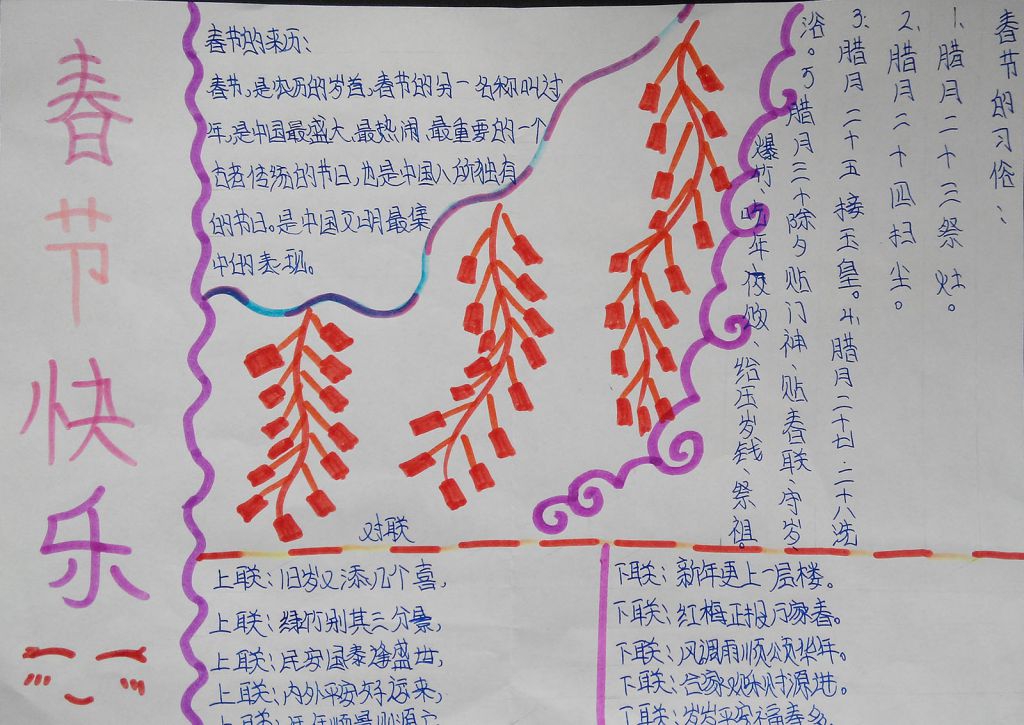 春节快乐
春节的来历：
春节，是农历的岁首，春节的另一名称叫过
年，是中国最盛大、最热闹、最重要的一个
古老传统的节日，也是中国人所独有
的节日。是中国文明最集
中的表现。
春节的习俗：
1、腊月二十三祭灶。
2、腊月二十四扫尘。
3、腊月二十五接玉皇。4、腊月二十七、二十八洗
浴。5、腊月三十除夕贴门神、贴春联、守岁、
爆竹、吃年夜饭、给压岁钱、祭祖。
对联
上联：旧岁又添几个喜，
下联：新年更上一层楼。
上联：绿竹别其三分景，
下联：红梅正报万家春。
上联：民安国泰逢盛世，
下联：风调雨顺颂华年。
上联：内外平安好运来，
下联：合家欢乐财源进。
上联：年年顺景财源
下联：岁岁平安福寿多。